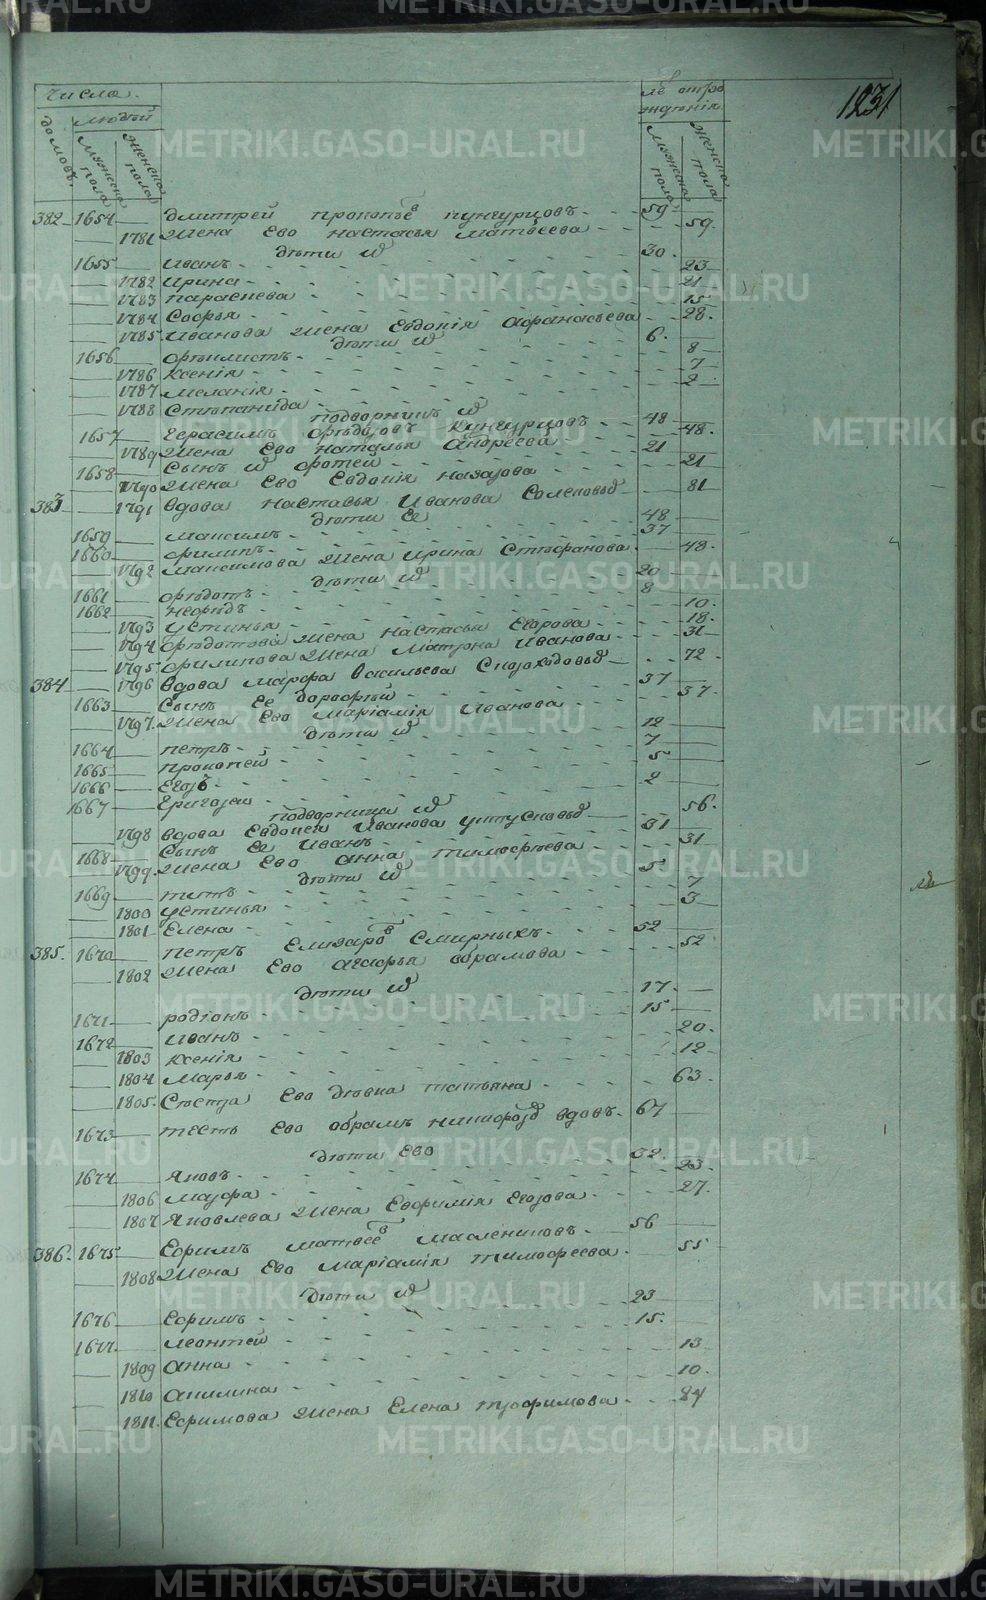 Числа.
людей
домовъ.
мужеска пола
женска пола
лѣ отро
жденія
мужеска пола
женска пола
1231
382 1654 Дмитрей Прокопьев Кунгурцовъ. 59
1781 Жена Ево Настасья Матвеева 59.
дѣти их
1655 Иванъ 30.
1782 Ирина 23
1783 Параскева 21
1784 Софья 15
1785. Иванова жена Евдокія Афанасьева 28.
дѣти их
1656 Фѣклистъ 6.
1786 Ксенія 8
1787 Меланія 7
1788 Стѣпанида 2
подворники их
1657 Герасимъ Фѣдоровъ Кунгурцовъ 48
1789 Жена Ево Наталья Андреева 48.
1658 Сынъ их Фотей 21
1790 Жена Ево Евдокія Назарова 21
383 1791 Вдова Настасья Иванова 81
дѣти Ее
1659 Максимъ 48
1660 Филипъ 37
1792 Максимова Жена Ирина Стѣфанова 48.
дѣти их
1661 Фѣдотъ 20
1662 Неофидъ 8
1793 Устинья 10.
1794 Фѣдотова Жена Настасья Егорова 18.
1795 Филипова Жена Матрона Иванова 31
384 1796 Вдова Марфа Васильева Скороходовых 72
1663 Сынъ Ее Дорофѣй 37
1797. Жена Ево Маріамія Иванова 37.
дѣти их
1664 Петръ 12
1665 Прокопей 7
1666 Егоръ 5
1667 Григорей 2
подворники их
1798 Вдова Евдокея Иванова 56.
1668 Сынъ Ее Иванъ 31
1799. Жена Ево Анна Тимофѣева 31
дѣти их
1669 Титъ 5
1800 Устинья 7
1801 Елена 3
385. 1670 Петръ Елизаров Смирныхъ. 52
1802 Жена Ево Агафья Абрамова 52
дѣти их
1671 Родіонъ 17.
1672 Иванъ 15
1803 Ксенія 20.
1804 Марья 12
1805. Сѣстра Ево дѣвка Татьяна 63.
1673 Тесть Ево Абрамъ Никифоров вдовъ. 67
дѣти Ево
1674 Яковъ 32
1806 Марфа 23
1807 Яковлева Жена Ефимія Егорова 27.
386. 1675 Ефимъ Матвеев Маслениковъ 56
1808 Жена Ево Маріамія Тимофеева 55
дѣти их
1676 Ефимъ 23
1677. Леонтей 15.
1809 Анна 13
1810 Акилина 10.
1811. Ефимова Жена Елена Трофимова 24
METRIKI.GASO-URAL.RU